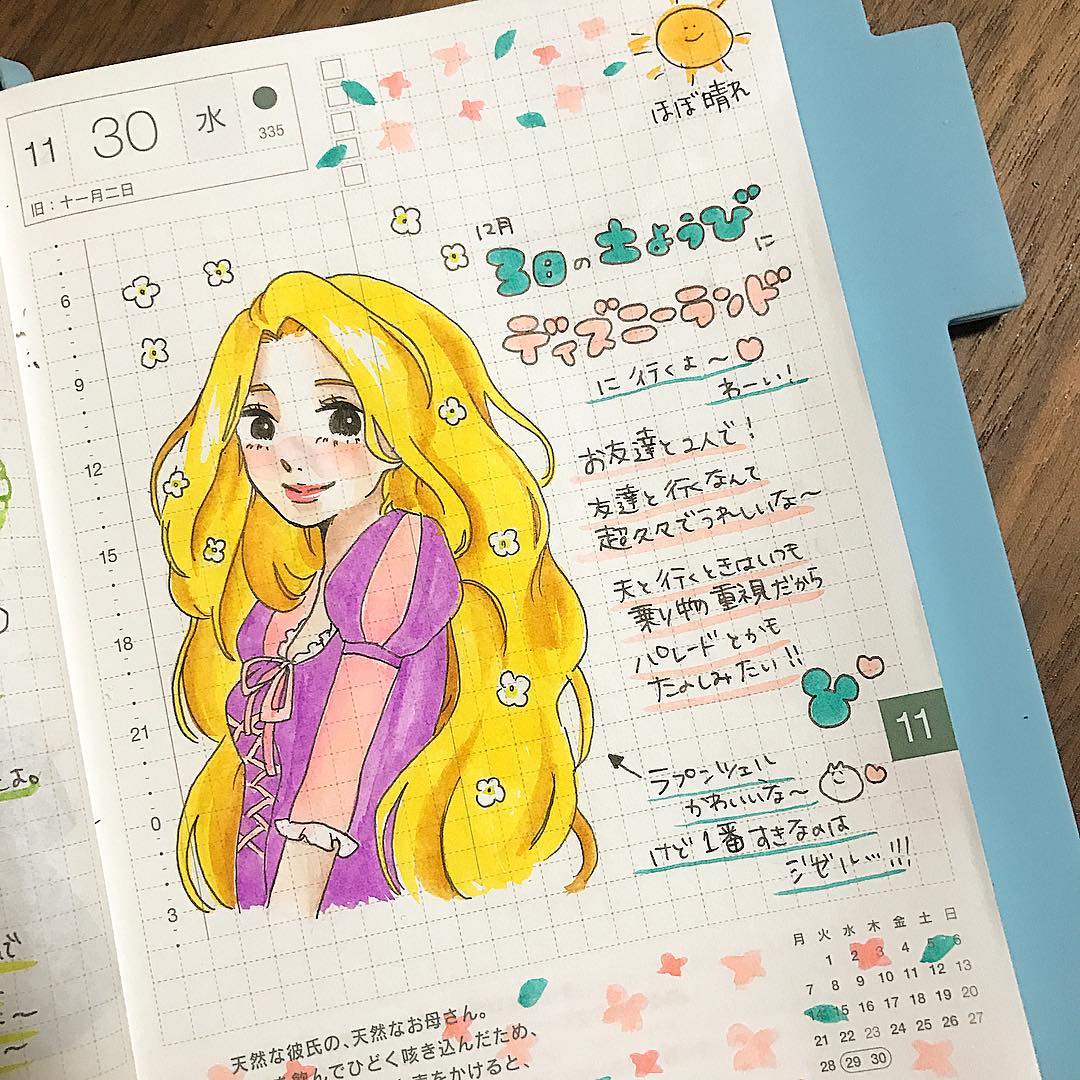 11 30 水 335
旧：十一月二日
ほぼ晴れ
12月
3日の土ようびに
ディズニーランド
に行くよ〜
わーい！
お友達と2人で！
友達と行くなんて
超久々でうれしいな〜
夫と行くときはいつも
乗り物重視だから
パレードとかも
たのしみたい!!
11
ラプンツェル
かわいいな〜
けど1番すきなのは
ジゼル…!!!
6
9
12
15
18
21
0
3
月 火 水 木 金 土 日
1 2 3 4 5 6
7 8 9 10 11 12 13
14 15 16 17 18 19 20
21 22 23 24 25 26 27
28 29 30
天然な彼氏の、天然なお母さん。
飲んでひどく咳き込んだため、
をかけると、